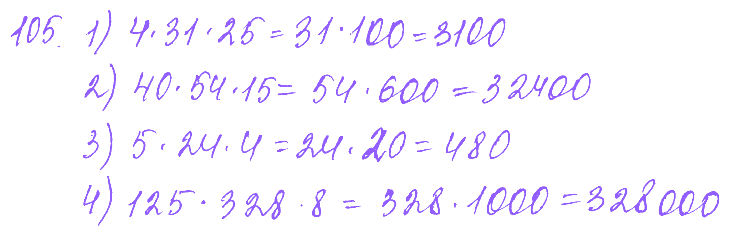 105. 1) 4·31·25 = 31·100 = 3100
2) 40·54·15 = 54·600 = 32400
3) 5·24·4 = 24·20 = 480
4) 125·328·8 = 328·1000 = 328000